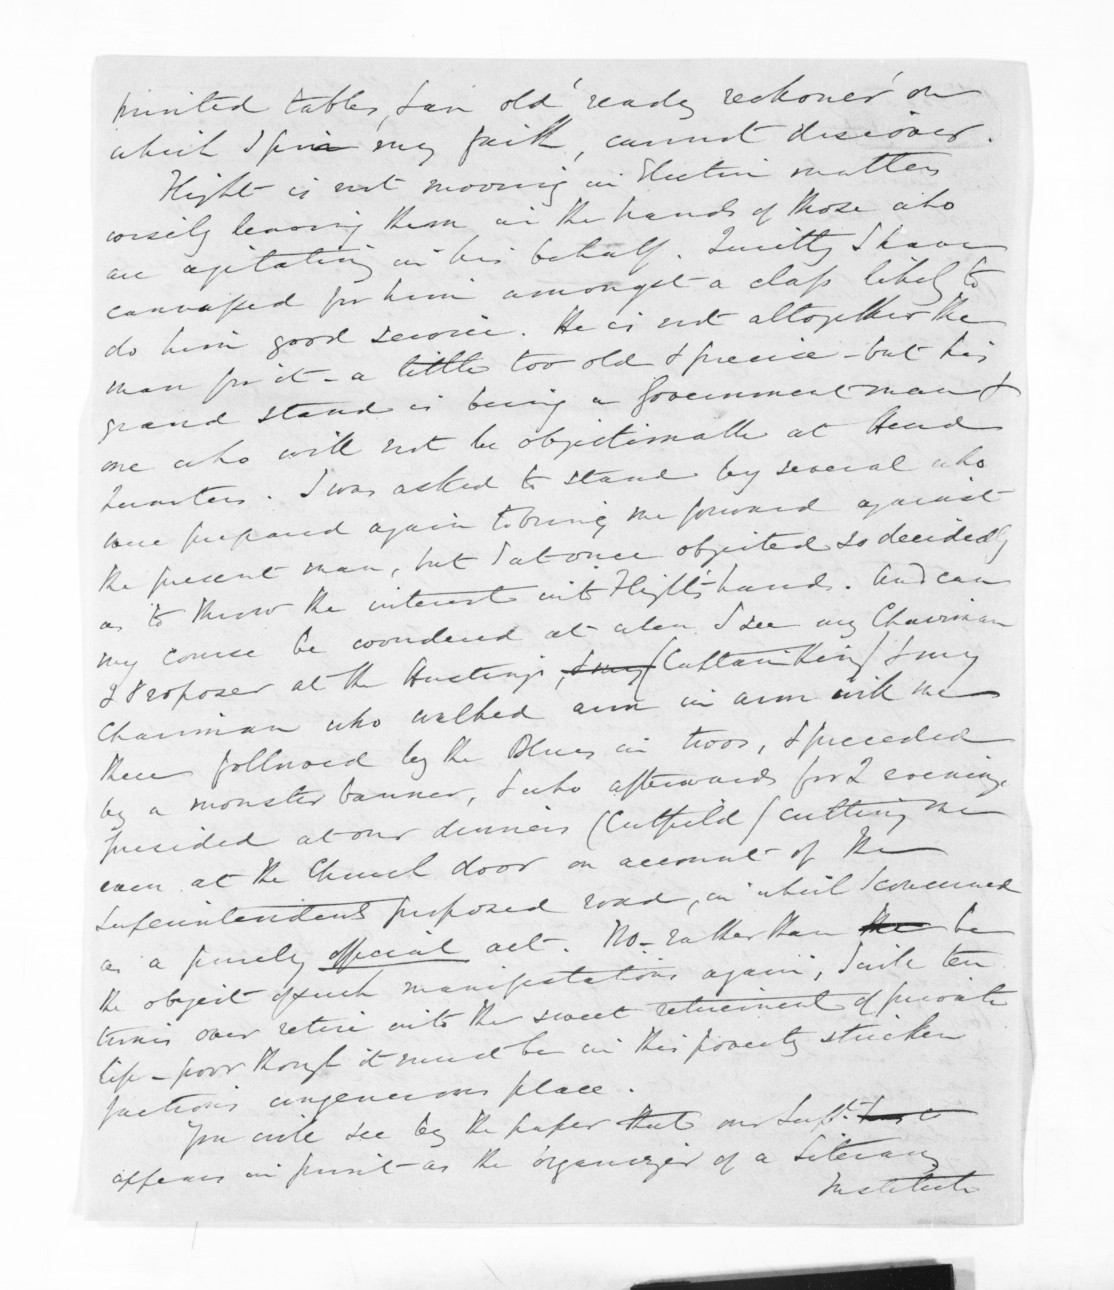 printed tables, & an old 'ready reckoner' on
which I pin my faith, cannot discover.
Hight is not mooving in Election matters
wisely leaving them in the hands of those who
are agitating in his behalf. Quietly I have
canvassed for him amongst a class likely to
do him good service. He is not altogether the
man for it - a little too old & precise - but his
grand stand is being a Government man &
one who will not be objectionable at Head
Quarters. I was asked to stand by several who
were prepared again to bring me forward against
the present man, but I at once objected so decidedly
as to throw the interest into Hight's hands. And can
my course be wondered at when I see my Chairman
& Proposer at the Hustings, & my (Captain King) & my
Chairman who walked arm in arm with me
there followed by the Blues in twos, & preceded
by a monster banner, & who afterwards for 2 evenings
presided at our dinners (Cutfield) cutting me
even at the Church door on account of the
Superintendents proposed road, in which I concurred
as a purely official act. No - rather than the be
the object of such manifestations again, I will ten
times over retire into the sweet retirement of private
life - poor though it must be in this poverty stricken
factious ungenerous place.
You will see by the paper that our Supt. has
appears in print as the organizer of a Literary
Institute